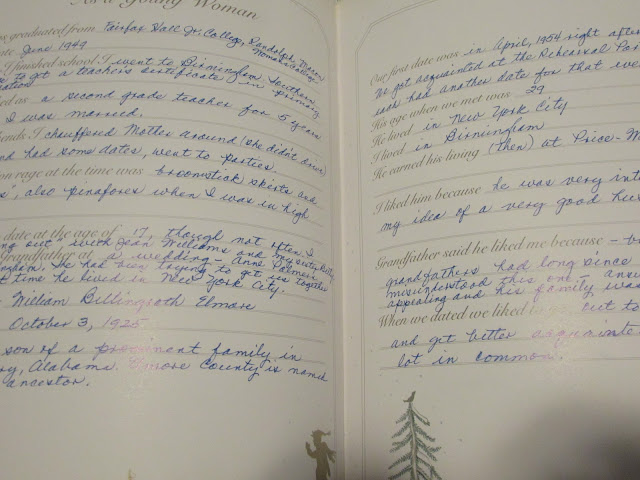 As a Young Woman
graduated from Fairfax Hall Jr. College, Randolph-Macon
Woman's College
June 1949
I finished school I went to Birmingham Southern
to get a teacher's certificate in primary
as a second grade teacher for 5 years
I was married.
I chauffered Mother around (she didn't drive)
and had some dates, went to parties
rage at the time was broomstick skirts and
also pinafores when I was in high
date at the age of 17, though not often I
out" with Jean Williams and my sister
Grandfather at a wedding - Anne Palmer's
had been trying to get us together
time he lived in New York City.
William Billingsroth Elmore
October 3, 1925
son of a prominent family in
Alabama. Elmore County is named
ancestor.
Our first date was in April, 1954, right after
We got acquainted at the Rehearsal
each had another date for that
His age when we met was 29
He lived in New York City
I lived in Birmingham
He earned his living (then) at Price-
I liked him because he was very
my idea of a very good
Grandfather said he liked me because -
grandfathers had long since
misunderstood this one -
appealing and his family was
When we dated we liked to go out to
and get better
lot in common.